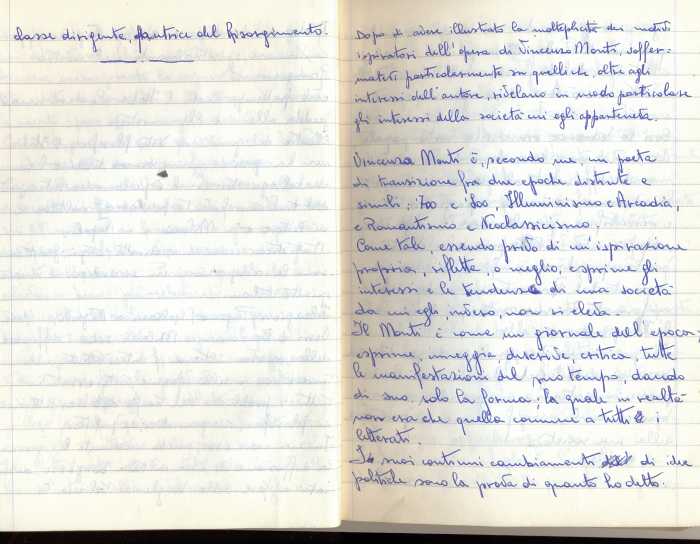 classe dirigente, fautrice del Risorgimento.
Dopo di avere illustrato la molteplicità dei motivi
ispiratori dell'opera di Vincenzo Monti, soffer=
matevi particolarmente su quelli che, oltre agli
interessi dell'autore, rivelano in modo particolare
gli interessi della società cui egli apparteneva.
Vincenzo Monti è, secondo me, un poeta
di transizione fra due epoche distinte e
simili: '700 e '800, Illuminismo e Arcadia,
e Romantismo e Neoclassicismo.
Come tale, essendo privo di un'ispirazione
propria, riflette, o meglio, esprime gli
interessi e le tendenze di una società
da cui egli, invero, non si eleva.
Il Monti è come un giornale dell'epoca;
esprime, inneggia, descrive, critica, tutte
le manifestazioni del suo tempo, dando
di suo solo la forma; la quale in realtà
non era che quella comune a tutti i
letterati.
I suoi continui cambiamenti di idee
politiche sono la prova di quanto ho detto.